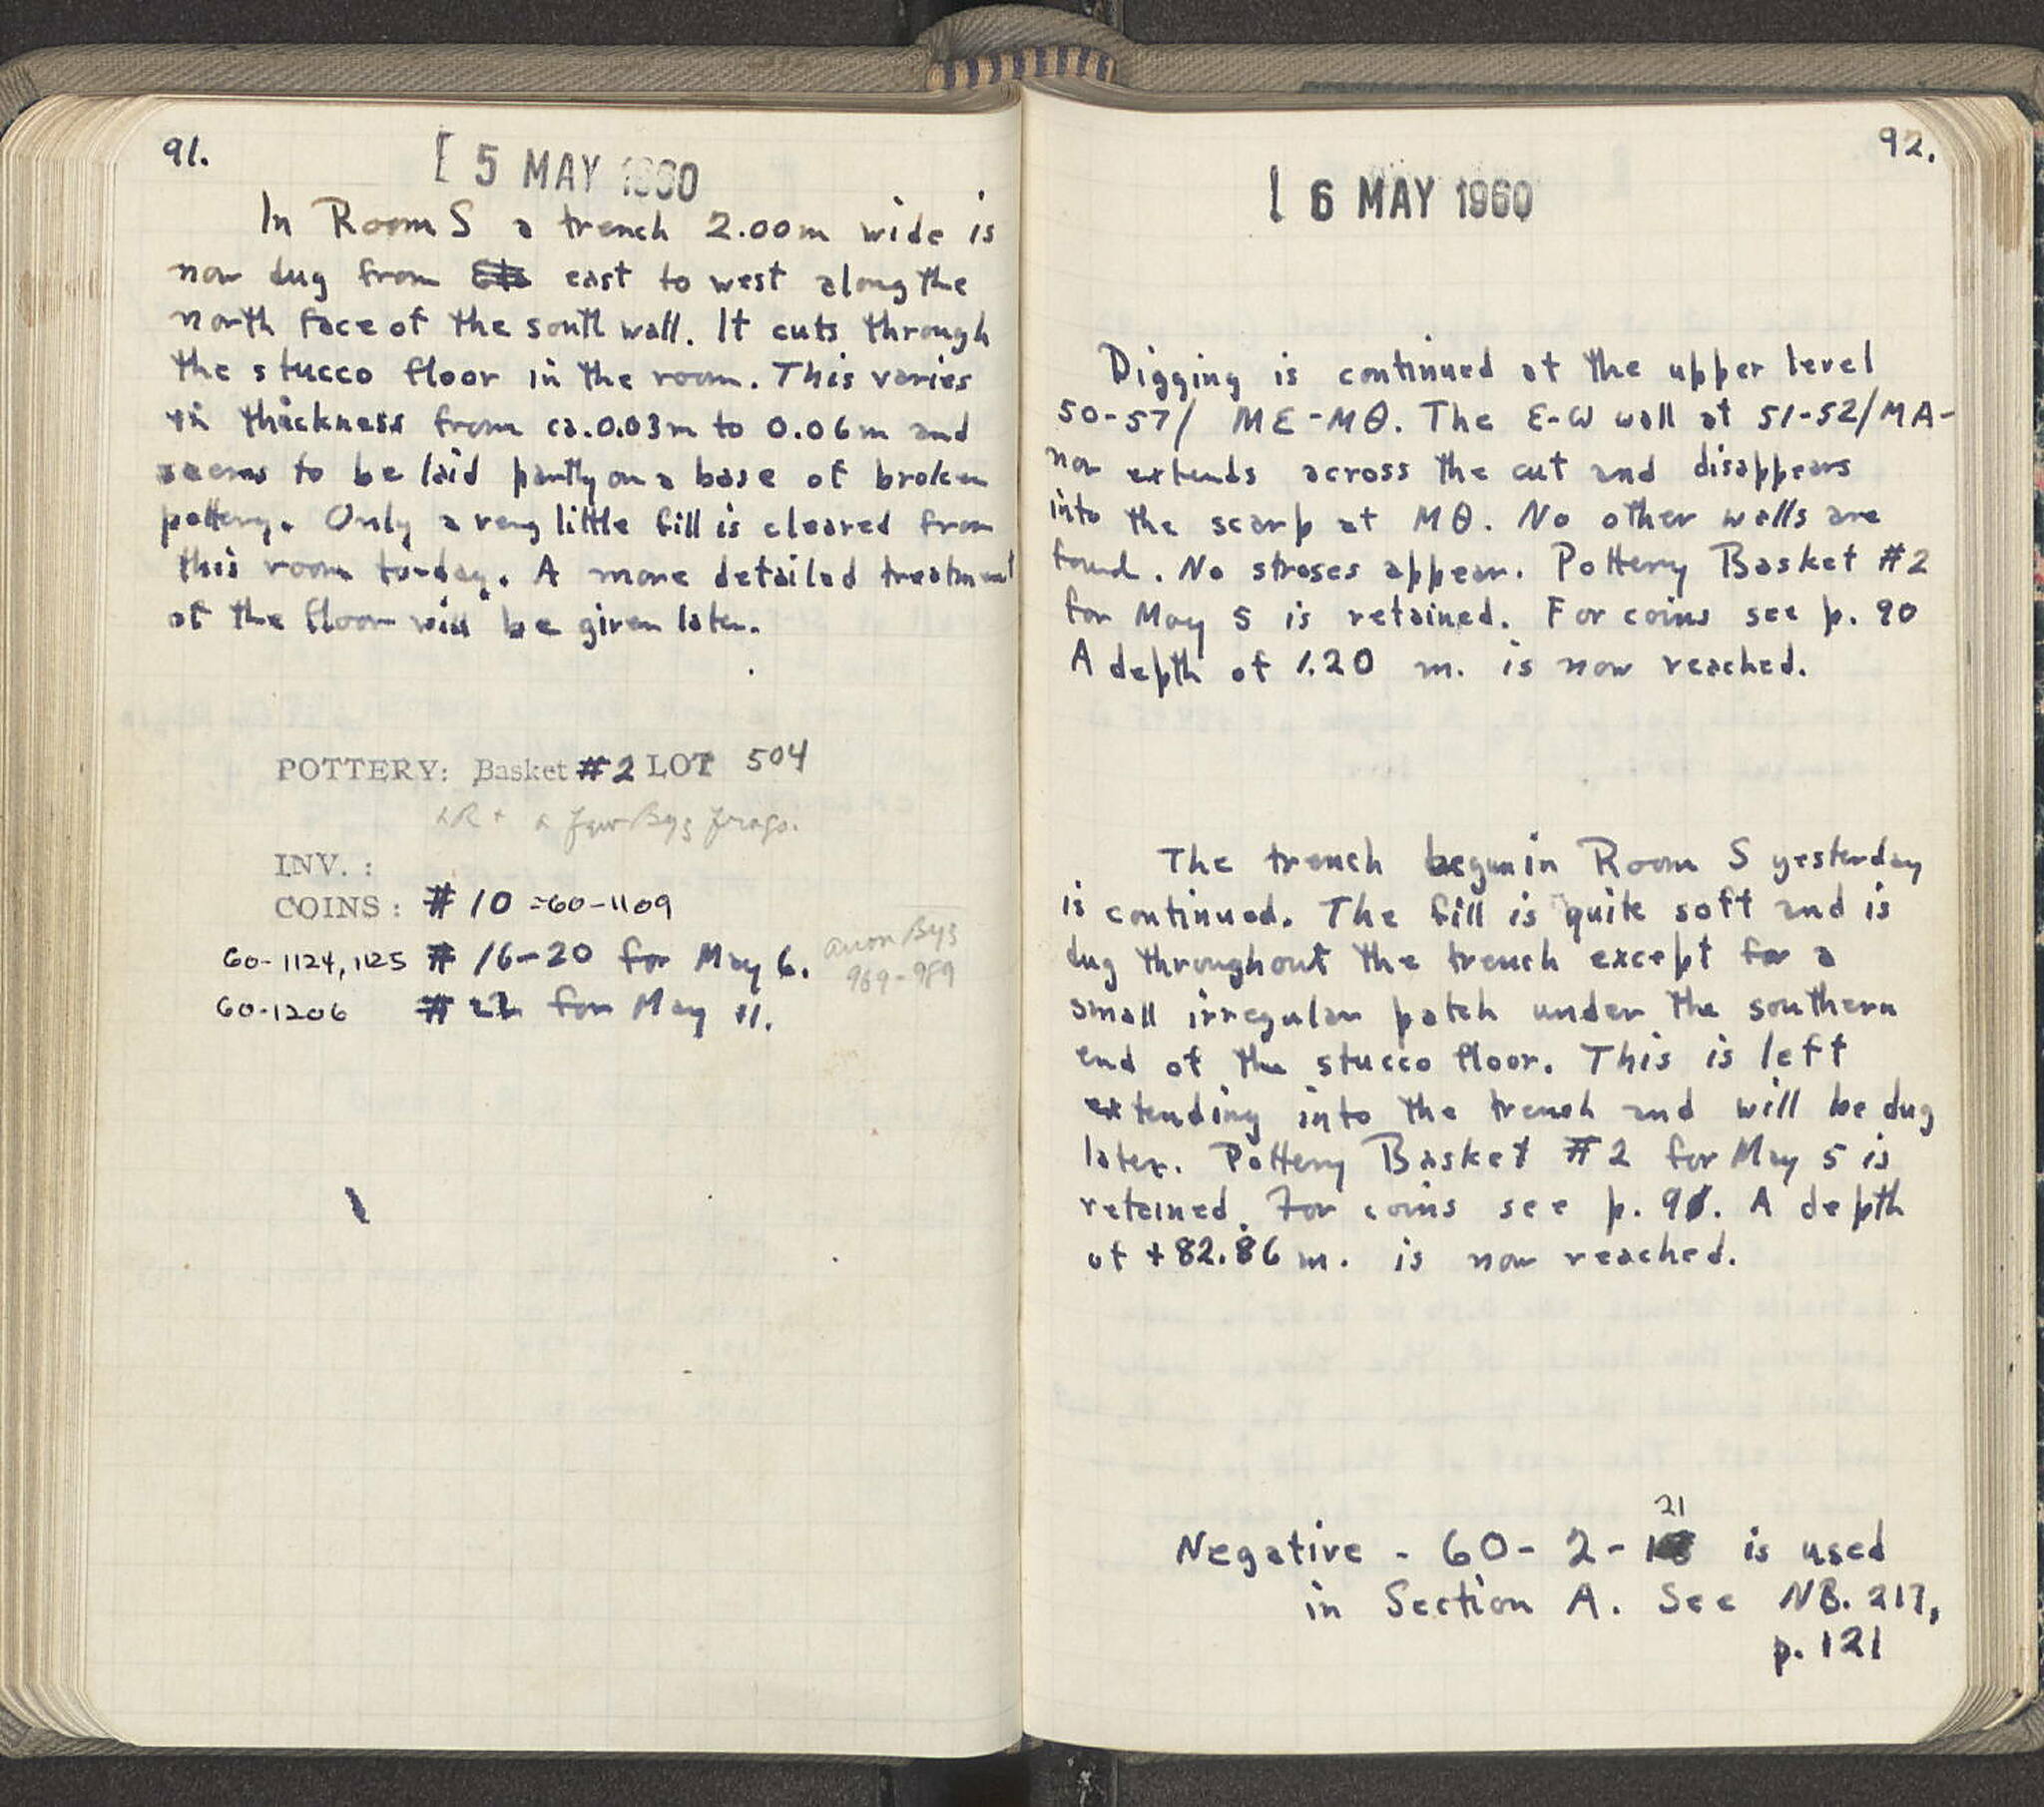 91.
5 MAY 1960
In Room S a trench 2.00m wide is
now dug from east to west along the
north face of the south wall. It cuts through
the stucco floor in the room. This varies
in thickness from ca. 0.03m to 0.06m and
seems to be laid partly on a base of broken
pottery. Only a very little fill is cleared from
this room to-day. A more detailed treatment
of the floor will be given later.
POTTERY: Basket #2 LOT 504
LR + a few Byz frags.
INV. :
COINS : #10 =60-1109
60-1124, 1125 #16-20 for May 6.
anon Byz
969-989
60-1206 #22 for May 11.
92.
6 MAY 1960
Digging is continued at the upper level
50-57/ ME-MΘ. The E-W wall at 51-52/MA-
now extends across the cut and disappears
into the scarp at MΘ. No other walls are
found. No stroses appear. Pottery Basket #2
for May 5 is retained. For coins see p. 90
A depth of 1.20 m. is now reached.
The trench begun in Room S yesterday
is continued. The fill is quite soft and is
dug throughout the trench except for a
small irregular patch under the southern
end of the stucco floor. This is left
extending into the trench and will be dug
later. Pottery Basket #2 for May 5 is
retained. For coins see p. 91. A depth
of +82.86 m. is now reached.
21
Negative - 60-2- is used
in Section A. See NB. 217,
p. 121